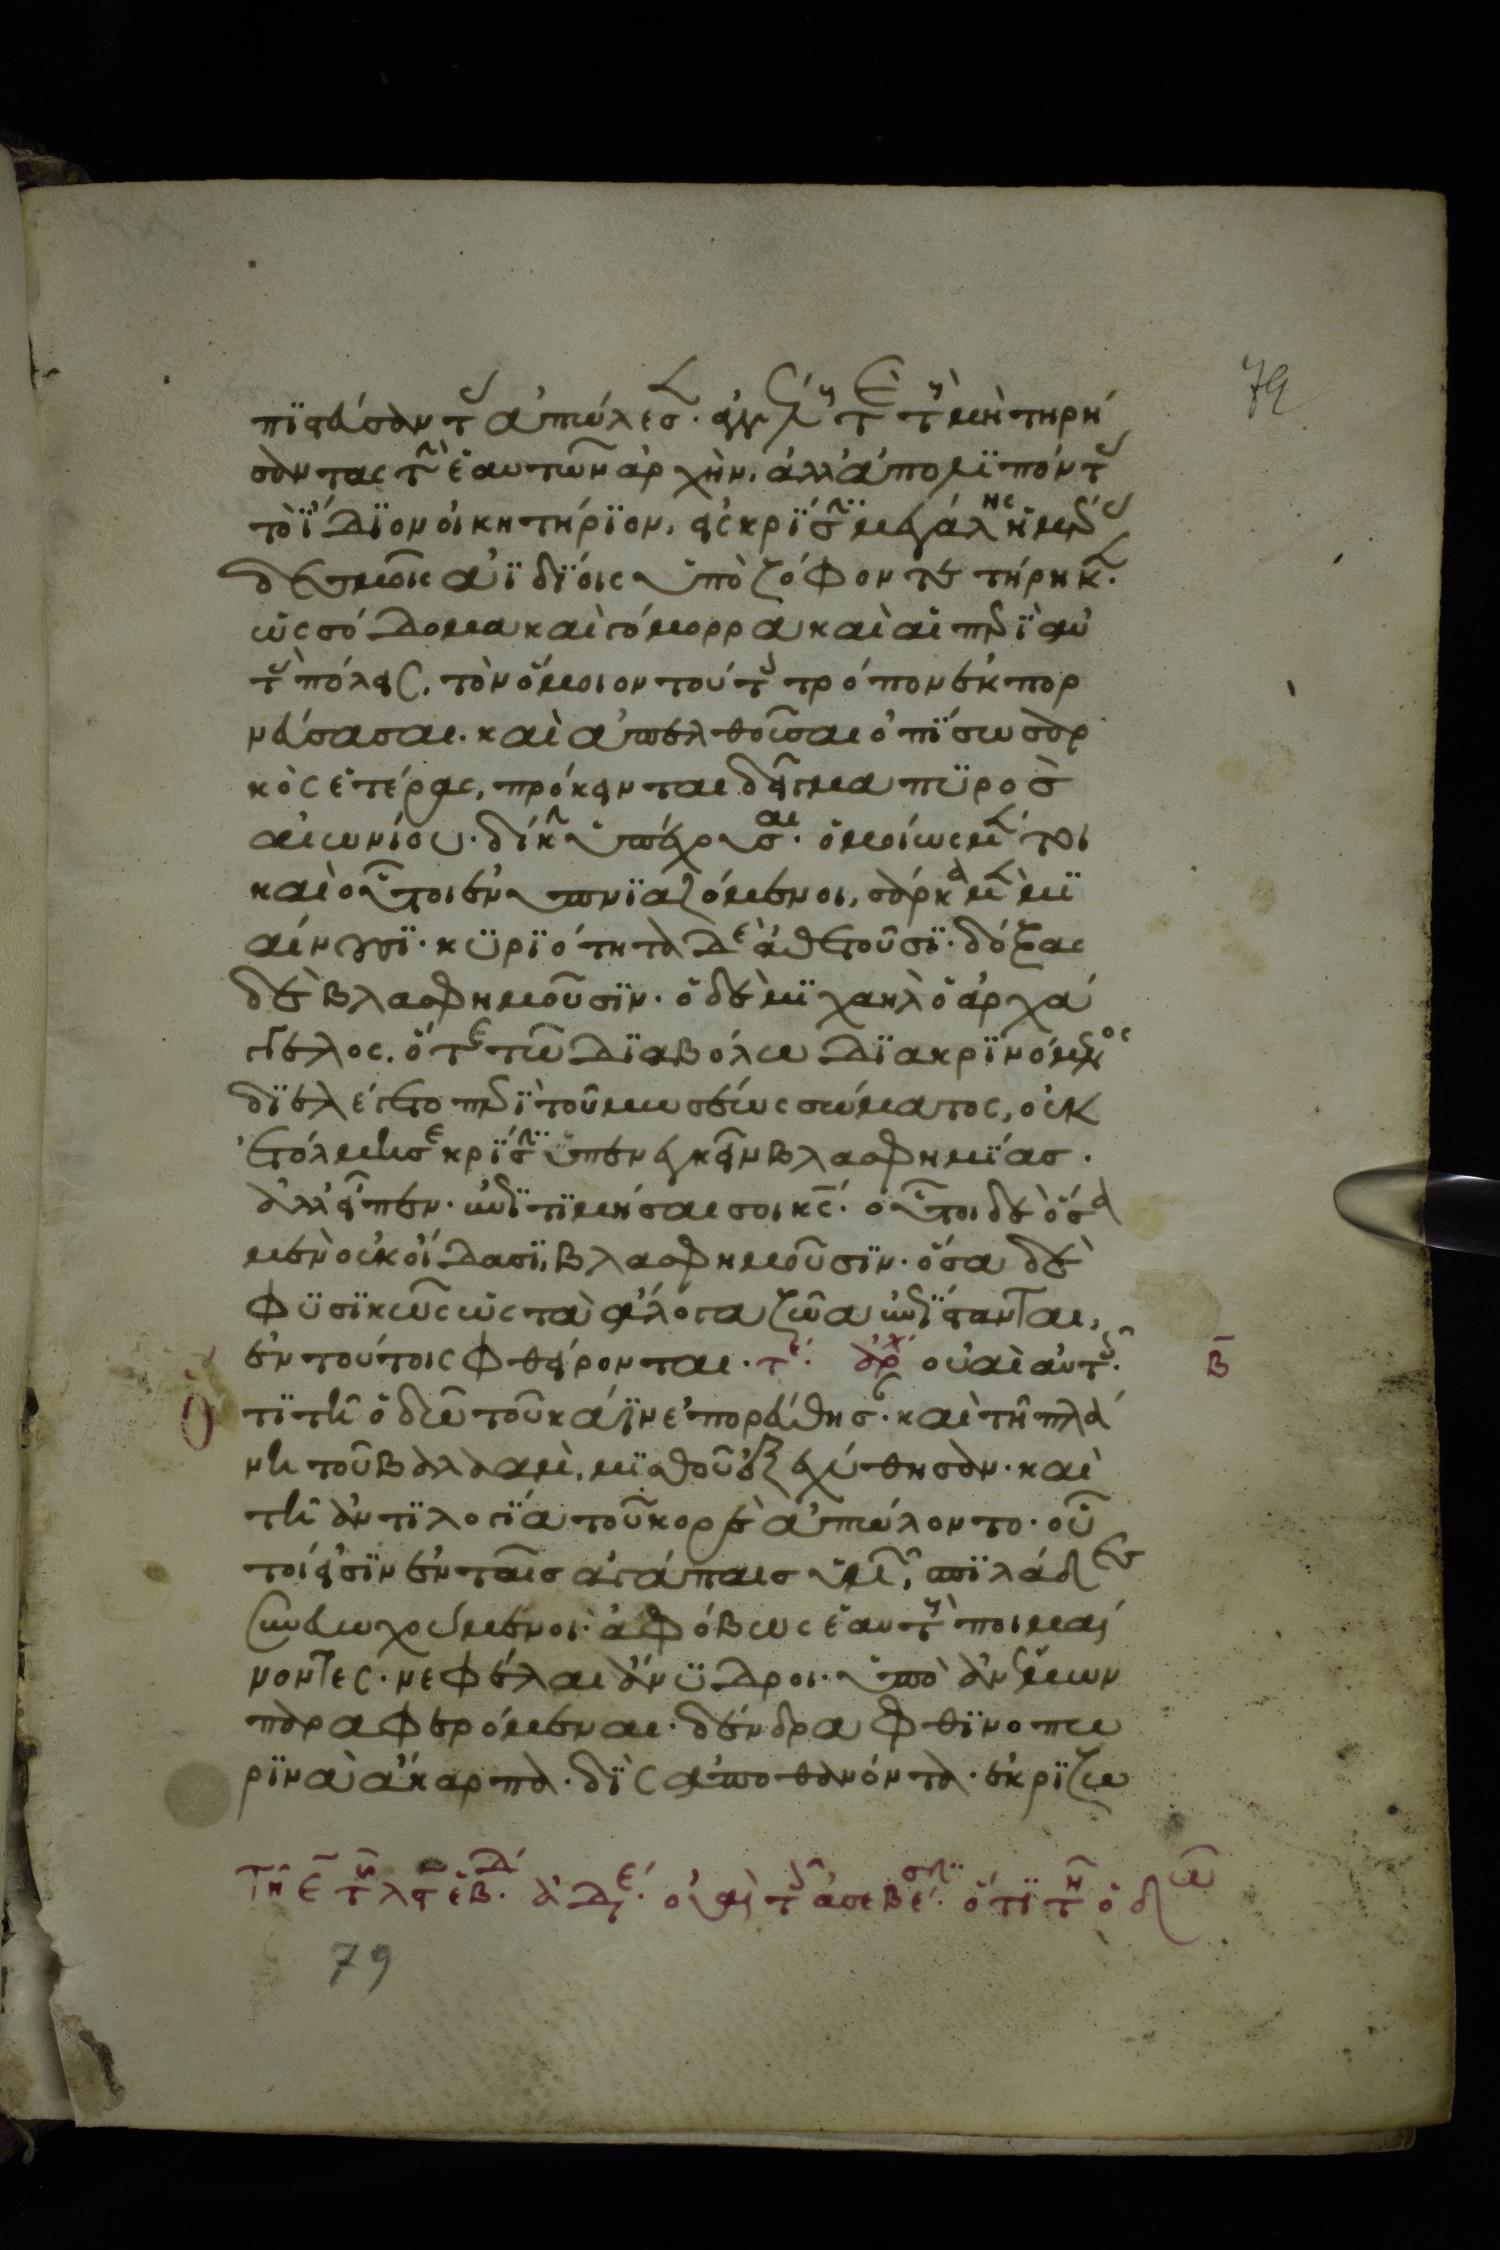 79
πϊστεύσαντας ἀπώλεσεν. ἀγγέλους τε τοὺς μὴ τηρή
σαντας τὴν ἑαυτῶν ἀρχὴν, ἀλλ' ἀπολϊπόντας
τὸ ἴδϊον οἰκητήρϊον, εἰς κρίσϊν μεγάλης ἡμέρας
δεσμοῖς ἀϊδίοις ὑπὸ ζόφον τετήρηκεν.
ὡς σόδομα καὶ γόμορρα καὶ αἱ περὶ αὐ
τὰς πόλεις, τὸν ὅμοιον τούτοις τρόπον ἐκπορ
νεύσασαι. καὶ ἀπελθοῦσαι ὀπίσω σαρ
κὸς ἑτέρας, πρόκεινται δεῖγμα πϋρὸς
αἰωνίου δίκην ὑπέχουσαι. ὁμοίως μέντοι
καὶ οὗτοι ἐνυπνϊαζόμενοι, σάρκα μὲν μϊ
αίνουσϊ. κϋρϊότητα δὲ ἀθετοῦσϊ. δόξας
δὲ βλασφημοῦσϊν. ὁ δὲ μϊχαὴλ ὁ ἀρχά
γγελος, ὅτε τῶ δϊαβόλω δϊακρϊνόμενος
δϊελέγετο περὶ τοῦ μωσέως σώματος, οὐκ
ἐτόλμησε κρίσϊν ὑπενεγκεῖν βλασφημϊας.
ἀλλ' εἶπεν. ἐπϊτϊμήσαι σοι κς. οὗτοι δὲ ὅσα
μὲν οὐκ οἴδασϊ, βλασφημοῦσϊν. ὅσα δὲ
φϋσϊκῶς ὡς τὰ ἄλογα ζῶα ἐπίστανται,
ἐν τούτοις φθείρονται. τέ. ἀρχ οὐαὶ αὐτοῖς. β
ὅτϊ τῆ ὁδῶ τοῦ κάϊν ἐπορεύθησαν. καὶ τῆ πλά
νη τοῦ βαλαὰμ, μϊσθοῦ ἐξεχύθησαν. καὶ
τῆ ἀντϊλογϊα τοῦ κορὲ ἀπώλοντο. οὗ
τοί εἰσϊν ἐν ταῖς ἀγάπαις ὑμῶν, σπϊλάδες
συνευωχούμενοι. ἀφόβως ἑαυτοὺς ποιμαί
νοντες. νεφέλαι ἄνϋδροι. ὑπὸ ἀνέμων
παραφερόμεναι. δένδρα φθϊνοπω
ρϊνὰ ἄκαρπα. δὶς ἀποθανόντα. ἐκρϊζω
Τῆ ε τῆς ἑβ. ἀδε. οὐαὶ τοῖς ἀσεβέσϊν. ὅτϊ τῆ ὁδῶ
79